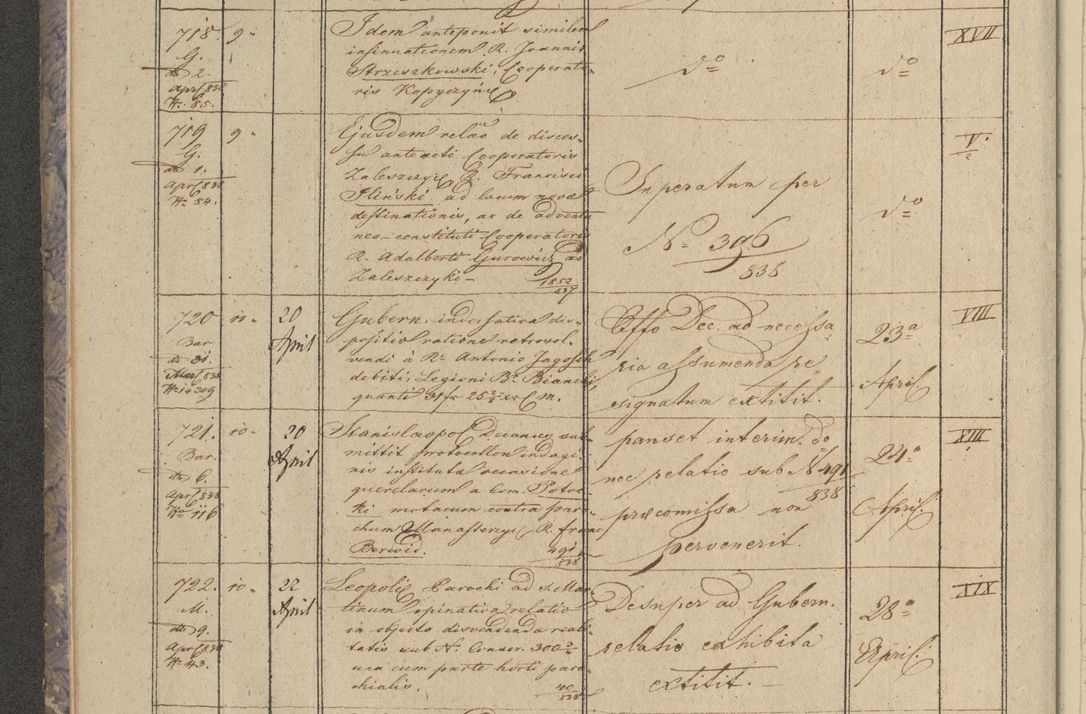 718. 9.
G.
do 2.
Apr. 838
Nr. 85.
Idem anteponit similem
insinuationem R. Joannis
Strzeszkowski, Cooperato-
ris Kopyczyńc
do
do
XVII
719 9.
G.
do 1.
Apr. 838
Nr. 84.
Ejusdem relao de disces-
su anteacti Cooperatoris
Zaleszczyc R. Francisci
Iliński ad locum novae
destinationis, ac de adventu
neo-constituti Cooperatoris
R. Adalberti Gurowicz ad
Zaleszczyki -
Superatum per
No 396
838
do
V.
2
720 10.
Bar
do 31.
Mart 838
Nr.
20
April
Gubern. dis-
positio ratione retrosol-
vendi à Re Antonio Jagosch
debiti, Legioni Br. Bianchi
quanti 3 fr 25 xr C.M.
Effo Dec. ad necessa
ria assumenda re
signatum extitit.
23a
April.
VIII
721. 10.
Bar.
do 6.
Apr. 838
Nr. 116
20
April
Stanislaopol Decanus sub-
mittit protocollon indagi-
nis institutae occasione
querelarum a Com. Potoc-
ki motarum contra paro-
chum Manasterzyc R. Franc
Berwid.
491
838
panset interim. do
nec relatio sub No 491
838
praecomissa non
pervenerit.
24a
April.
XIII
722. 10.
M.
do 9.
Apr. 838
Nr. 43.
22
April
Leopolis Parochi ad S. Mar-
tinum opinativa relatio
in objecto disvendenda reali-
tatis sub Nr. Conscr. 300 3/4
una cum parte horti paro-
chialis.
40
838
Desuper ad Gubern.
relatio exhibita
extitit. -
28a
April.
XIX